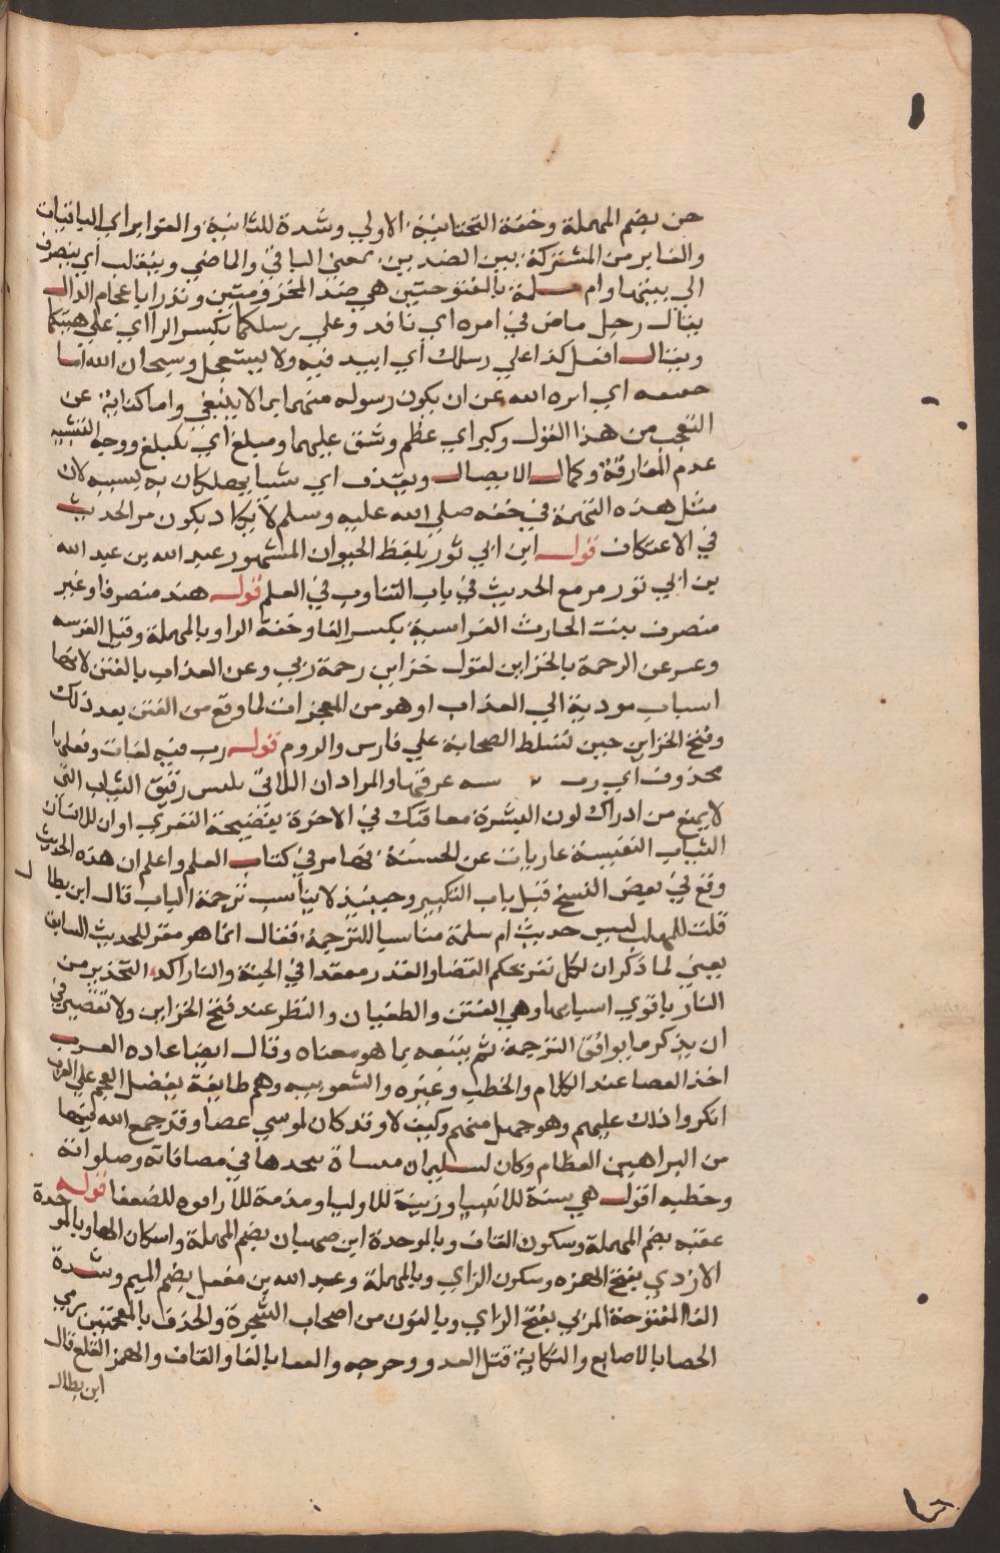 حن بضم المهملة وخفة التحتانية الاولي وشدة للثانية والغوابراي الباقيات
والغابر من المشتركة بين الضدين بمعني الباقي والماضي وينقلب اي ينصرف
الي بيتها وام سلمة بالمفتوحتين هي ضد المخزوميتين ونذرا باعجام الذال
يقال رجل ماض في امره اي نافد وعلي رسلكما بكسر الرا اي علي هينتكما
ويقال افعل كذا علي رسلك اي ايبد فيه ولا يستعجل وسبحان الله اما
حقيقه اي انزه الله عن ان يكون رسوله متهما بما لا ينبغي واما كناية عن
التعجب من هذا القول وكبر اي عظم وشق عليهما ومبلغ اي كمبلغ ووجه التشبيه
عدم المفارقة وكمال الاتصال ويقذف اي شيا يحصلكان به بسببه لان
مثل هذه التهمة في حقه صلي الله عليه وسلم لا يكاد يكون مر الحديث
في الاعتكاف قوله ابن ابي ثور بلفظ الحيوان المشهور عبد الله بن عبد الله
بن ابي ثور مر مع الحديث في باب التناوب في العلم قوله هند منصرفا وغير
منصرف بنت الحارث الفراسية بكسر الفا وخفة الرا وبالمهملة وقيل القرسه
وعبر عن الرحمة بالخزاين لقوله خزاين رحمة ربي وعن العذاب بالفتن لانها
اسباب مودية الي العذاب او هو من المعجزات لما وقع من الفتن بعد ذلك
وفتح الخزاين حين تسلط الصحابة علي فارس والروم قوله رب فيه لغات وفعلها
محذوف اي رب سه عرفتها والمراد ان اللاتي يلبس رقيق الثياب التي
لا يمنع من ادراك لون البشرة معاقبات في الاخرة بفضيحة التعري او ان للاتي
الثياب النفيسة عاريات عن الحسنة فيها مر في كتاب العلم واعلم ان هذه الحديث
وقع في بعض النسخ قبل باب التكبير وحينيذ لا يناسب ترجمة الباب قال ابن بطا ل
قلت للمهلب ليس حديث ام سلمة مناسبا للترجمة فقال انما هو مقر للحديث السابق
يعني لما ذكر ان لكل نفر بحكم القضا والقدر مقعدا في الجنة والنار اكد التحذير من
النار باقوي اسبابها وهي الفتن والطغيان والبطر عند فتح الخزاين ولا تقصير في
ان يذكر ما يوافق الترجمة ثم يتبعه بما هو معناه وقال ايضا عاده العرب
اخذ العصا عند الكلام والخطب وغيره والشعوبيه وهم طايفة يفضل العجم علي العرب
انكروا ذلك عليهم وهو جهل منهم وكيف لا وقد كان لموسي عصا وقد جمع الله فيها
من البراهين العظام وكان لسليمان منساة يتخذها في مصافاته وصلواته
وخطبه اقول هي سنة للانبيا وزينة للاوليا ومذمة للاعدا وقوه للضعفا قوله
عقبه بضم المهملة وسكون القاف وبالموحدة ابن صهبان بضم المهملة واسكان الها وبالموحدة
الازدي بفتح الهمزه وسكون الزاي وبالمهملة وعبد الله بن مغفل بضم الميم وشدة
الفا المفتوحة المزني بفتح الزاي وبالنون من اصحاب الشجرة والخذف بالمعجمتين رمي
الحصا بالاصابع والنكاية قتل العدو وجرحه والفقا بالفا والقاف والهمز القلع قال
ابن بطال